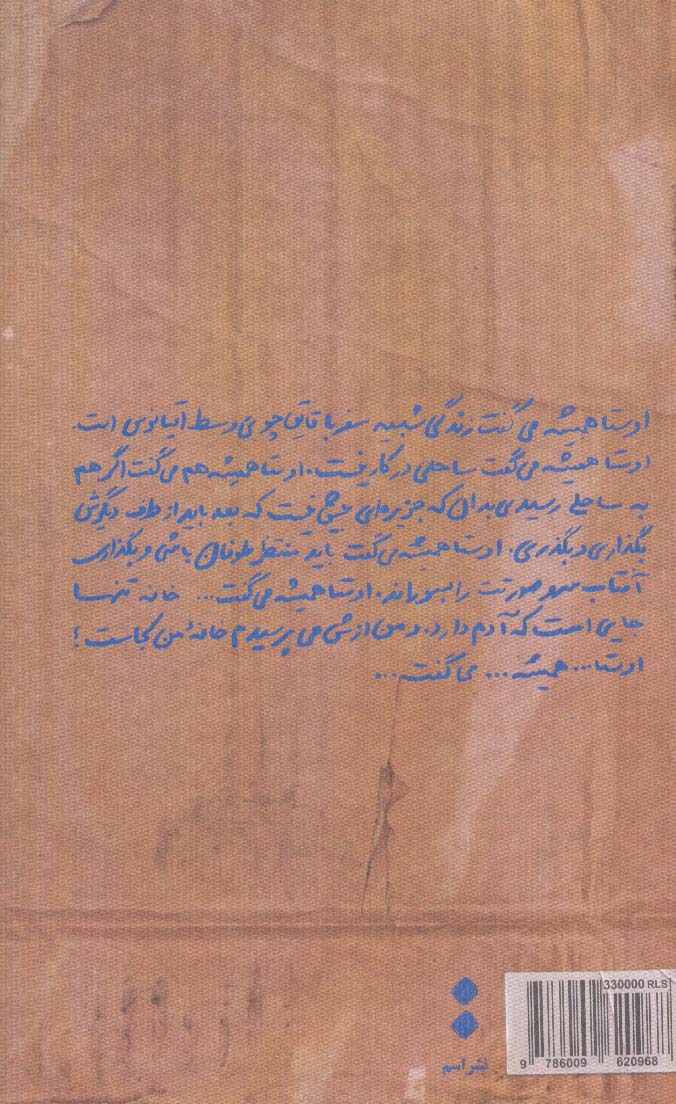 اوستا همیشه می گفت زندگی شبیه سفر با قایق چوبی وسط اقیانوس است.
اوستا همیشه می گفت ساحلی در کار نیست. اوستا همیشه هم می گفت اگر هم
به ساحلی رسیدی بدان که جزیره‌ای بیش نیست که بعد باید از طرف دیگرش
بگذاری و بگذری. اوستا همیشه می گفت باید منتظر طوفان باشی و بگذاری
آفتاب سر و صورتت را بسوزاند. اوستا همیشه می گفت... خانه تنها
جایی است که آدم دارد. و من ازش می پرسیدم خانهٔ من کجاست؟
اوستا... همیشه... می گفت...
330000 RLS
نشر اسم
9 786009 620968